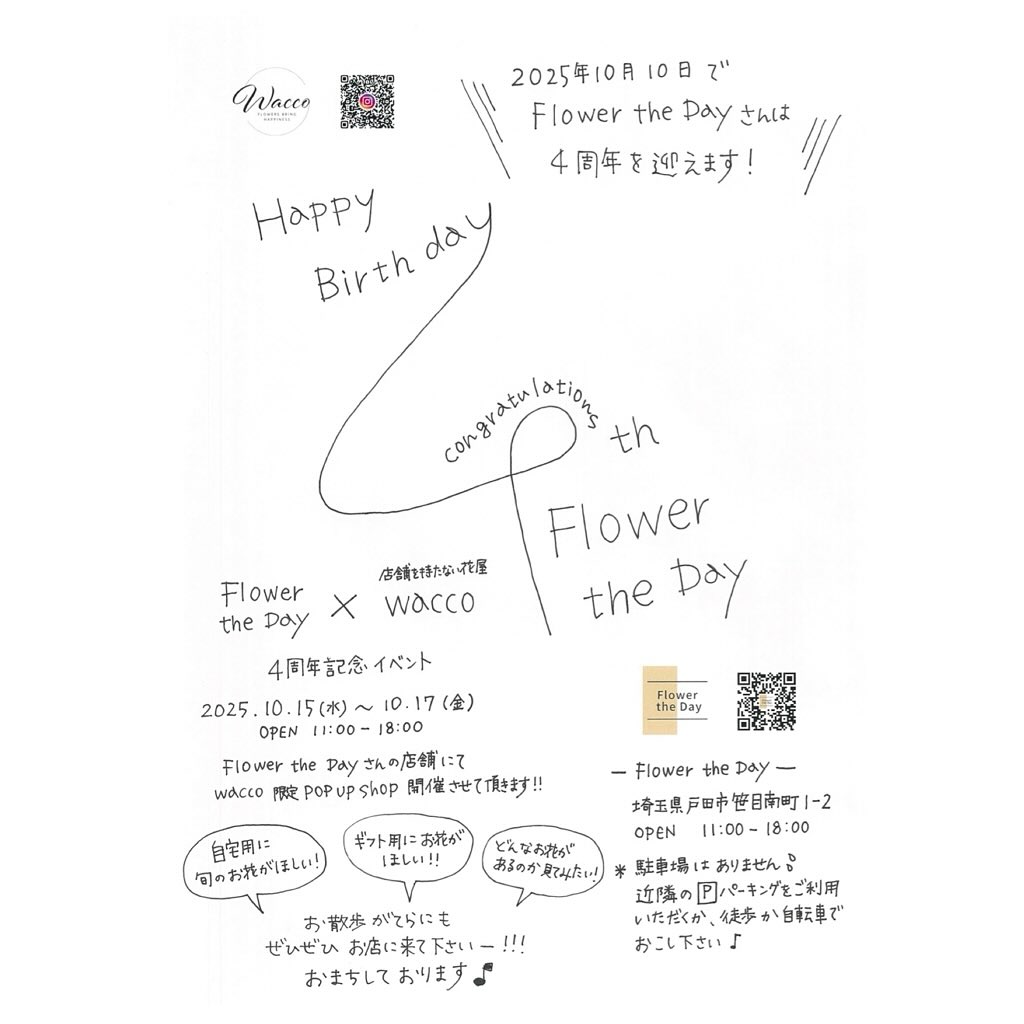 Wacco
FLOWERS BRING
HAPPINESS
2025年10月10日で
Flower the Dayさんは
4周年を迎えます!
Happy
Birthday
congratulations
4th
Flower
the Day
Flower
the Day
×
店舗を持たない花屋
wacco
4周年記念イベント
2025.10.15(水)〜10.17(金)
OPEN 11:00-18:00
Flower the Dayさんの店舗にて
wacco 限定 POP UP SHOP 開催させて頂きます!!
自宅用に
旬のお花がほしい!
ギフト用にお花が
ほしい!!
どんなお花が
あるのか見てみたい!
お散歩がてらにも
ぜひぜひ お店に来て下さいー!!!
おまちしております♪
Flower
the Day
— Flower the Day —
埼玉県戸田市笹目南町1-2
OPEN 11:00-18:00
* 駐車場はありません。
近隣のPパーキングをご利用
いただくか、徒歩か自転車で
おこし下さい♪